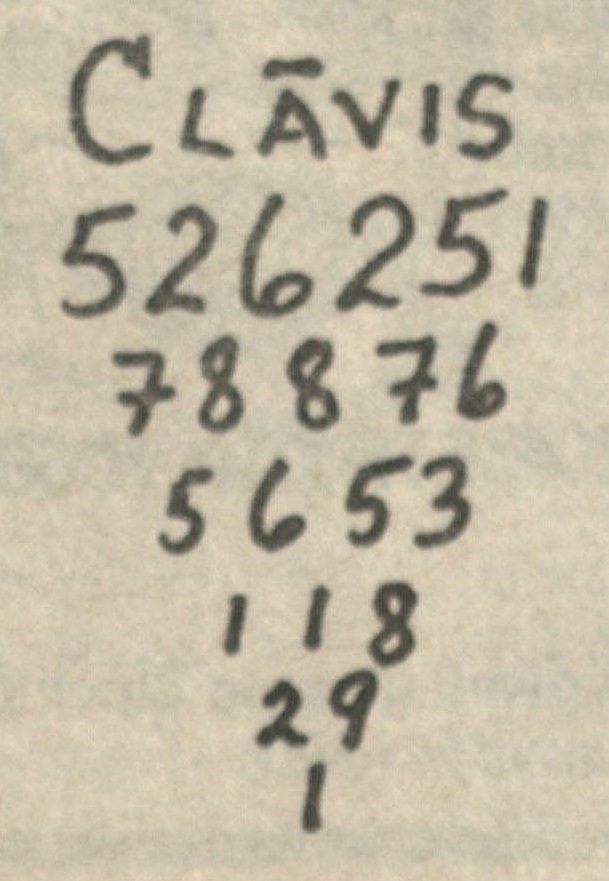 CLĀVIS
526251
78876
5653
118
29
1